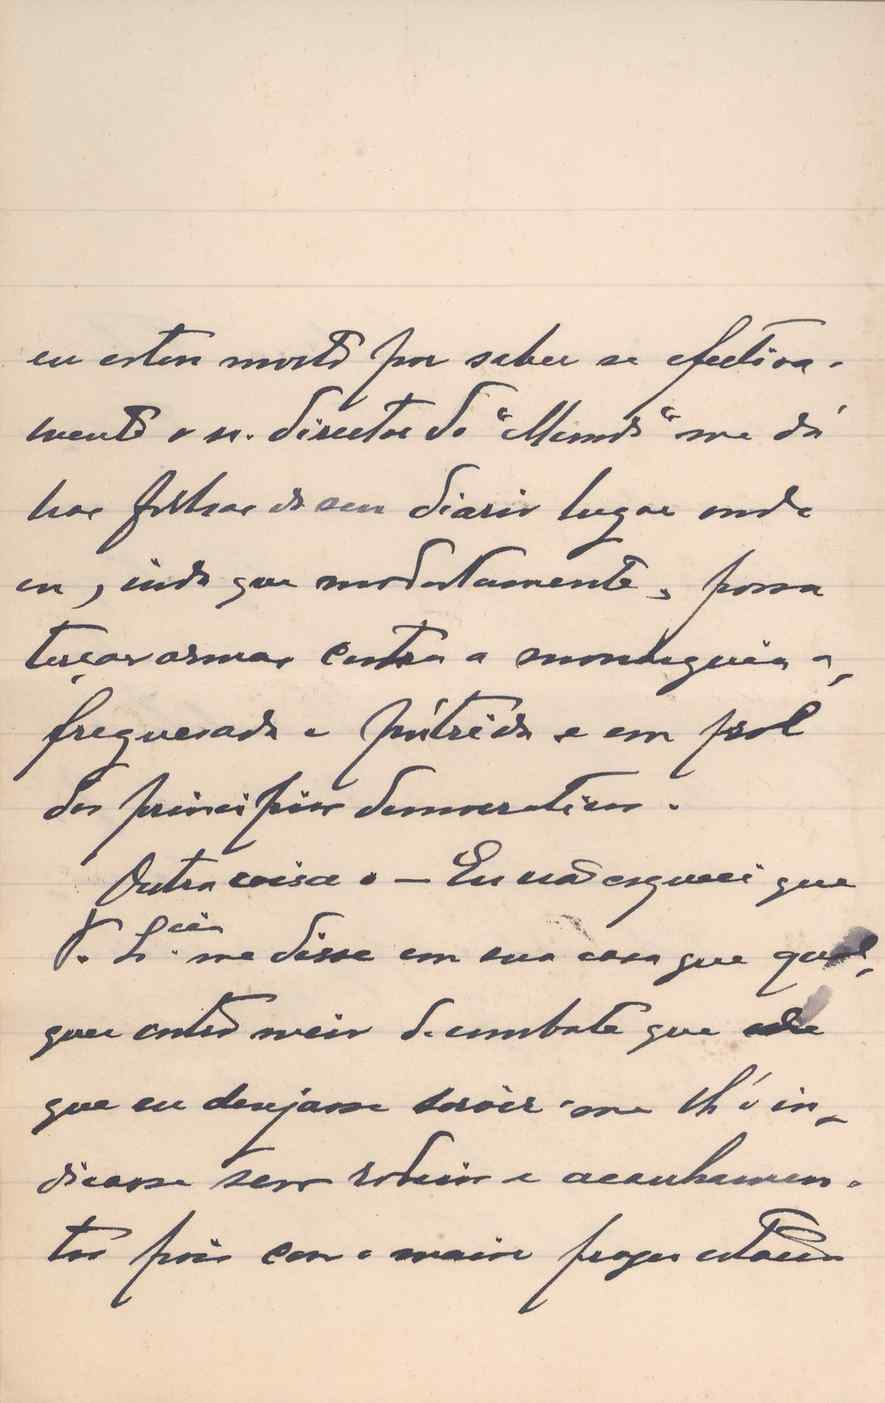 eu estou morto por saber se efectiva-
mente o sr. director do "Mundo" me dá
nas folhas do seu diario lugar onde
eu, inda que modestamente, possa
terçar armas contra a monarquia a-
freguesada e pútrida e em prol
dos principios democraticos.
Outra coisa. — Eu não esqueci que
V. S.cia me disse em sua casa que qual-
quer outro meio de combate que
que eu desejasse servir-me lh'o in-
dicasse sem rodeios e acanhamen-
tos pois com o maior prazer estaria